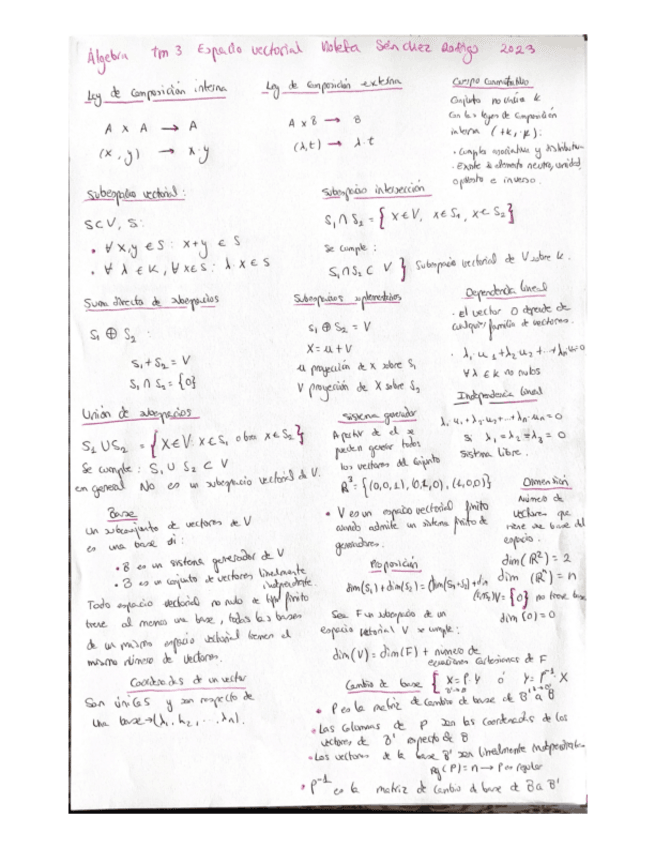 Álgebra tm 3 Espacio vectorial Violeta Sánchez Rodrigo 2023
Ley de composición interna
A x A → A
(x, y) → x·y
Ley de composición externa
A x B → B
(λ,t) → λ·t
Cuerpo conmutativo
Conjunto no vacío k
con las leyes de composición
interna (+k, ·k):
· Cumpla asociativa y distributiva
· Existe el elemento neutro, unidad,
opuesto e inverso.
Subespacio vectorial:
S⊂V, S:
• ∀ x,y ∈ S : x+y ∈ S
• ∀ λ ∈ K, ∀ x∈S : λ·x ∈ S
Subespacio intersección
S₁ ∩ S₂ = { x∈V, x∈S₁, x∈S₂}
Se cumple:
S₁∩S₂ ⊂ V } Subespacio vectorial de V sobre k.
Suma directa de subespacios
S₁ ⊕ S₂ :
S₁ + S₂ = V
S₁ ∩ S₂ = {0}
Subespacios suplementarios
S₁ ⊕ S₂ = V
X = u + V
u proyección de x sobre S₁
V proyección de X sobre S₂
Dependencia lineal
· el vector 0 depende de
cualquier familia de vectores.
· λ₁·u₁+λ₂u₂+..+λₙuₙ=0
∀λ ∈ k no nulos
Independencia lineal
λ₁u₁+λ₂·u₂+..+λₙ·uₙ=0
si λ₁=λ₂=λ₃ = 0
Sistema libre.
Unión de subespacios
S₁ ∪ S₂ = { X∈V: x∈S₁ o bien x∈S₂}
Se cumple: S₁ ∪ S₂ ⊂ V
en general No es un subespacio vectorial de V.
Sistema generador
A partir de el se
pueden generar todos
los vectores del conjunto
R³ = {(0,0,1), (0,1,0), (1,0,0)}
• V es un espacio vectorial finito
cuando admite un sistema finito de
generadores.
Dimensión
Número de
vectores que
tiene una base del
espacio.
dim(R²) = 2
dim (Rⁿ) = n
{0} no tiene base
dim (0) = 0
Base
Un subconjunto de vectores de V
es una base si:
• B es un sistema generador de V
• B es un conjunto de vectores linealmente
independiente.
Todo espacio vectorial no nulo de tipo finito
tiene al menos una base, todas las bases
de un mismo espacio vectorial tienen el
mismo número de vectores.
Proposición
dim(S₁)+dim(S₂)=dim(S₁+S₂)+dim
Sea F un subespacio de un
espacio vectorial V se cumple:
dim(V) = dim(F) + número de
ecuaciones cartesianas de F
Coordenadas de un vector
Son únicas y son respecto de
una base→(λ₁, λ₂, ..., λₙ).
Cambio de base { X=P·Y ó Y=P⁻¹·X
• P es la matriz de cambio de base de B' a B
• Las columnas de P son las coordenadas de los
vectores de B' respecto de B
• Los vectores de la base B' son linealmente independientes
Rg(P)=n → P es regular
• P⁻¹ es la matriz de cambio de base de B a B'